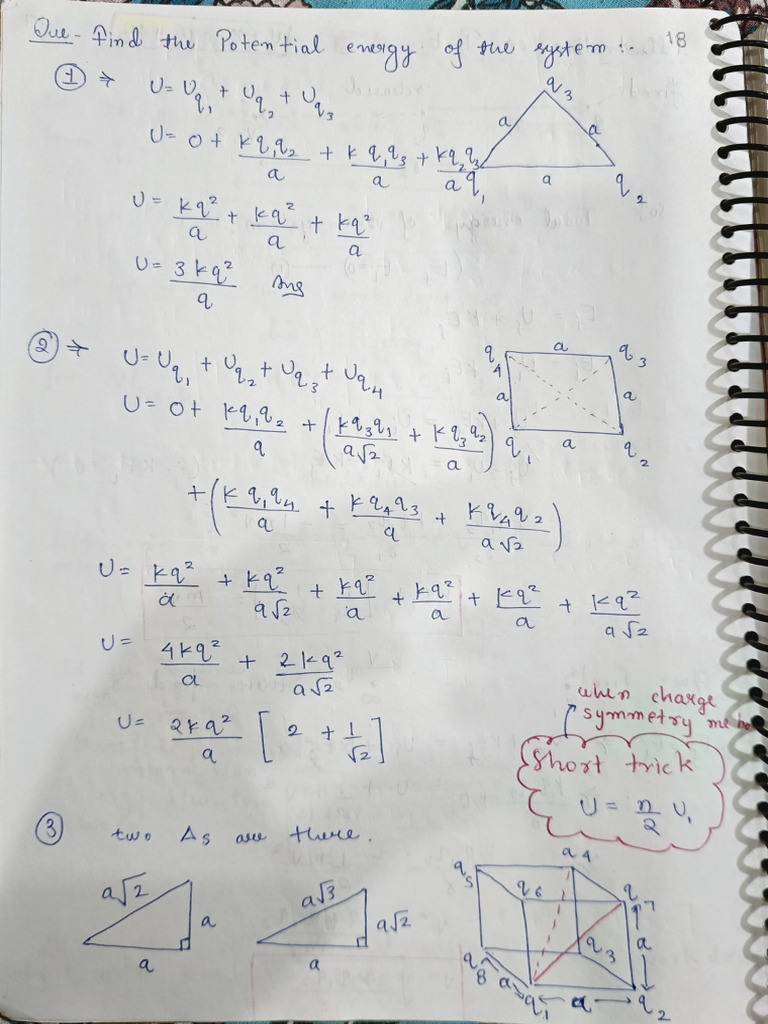 Que - Find the Potential energy of the system :- 18
① ⇒ U = U_q₁ + U_q₂ + U_q₃
U = 0 + kq₁q₂/a + kq₁q₃/a + kq₂q₃/a
U = kq²/a + kq²/a + kq²/a
U = 3kq²/a Ans
q₃
a a
q₁ a q₂
② ⇒ U = U_q₁ + U_q₂ + U_q₃ + U_q₄
U = 0 + kq₁q₂/a + (kq₃q₁/a√2 + kq₃q₂/a)
+ (kq₁q₄/a + kq₄q₃/a + kq₄q₂/a√2)
q₄ a q₃
a a
q₁ a q₂
U = kq²/a + kq²/a√2 + kq²/a + kq²/a + kq²/a + kq²/a√2
U = 4kq²/a + 2kq²/a√2
U = 2kq²/a [2 + 1/√2]
when charge
symmetry me ho
Short trick
U = n/2 U₁
③ two Δs are there.
a√2 a
a
a√3 a√2
a
q₅ q₄
q₆ q₇
q₃ a
q₈ a
q₁ a q₂